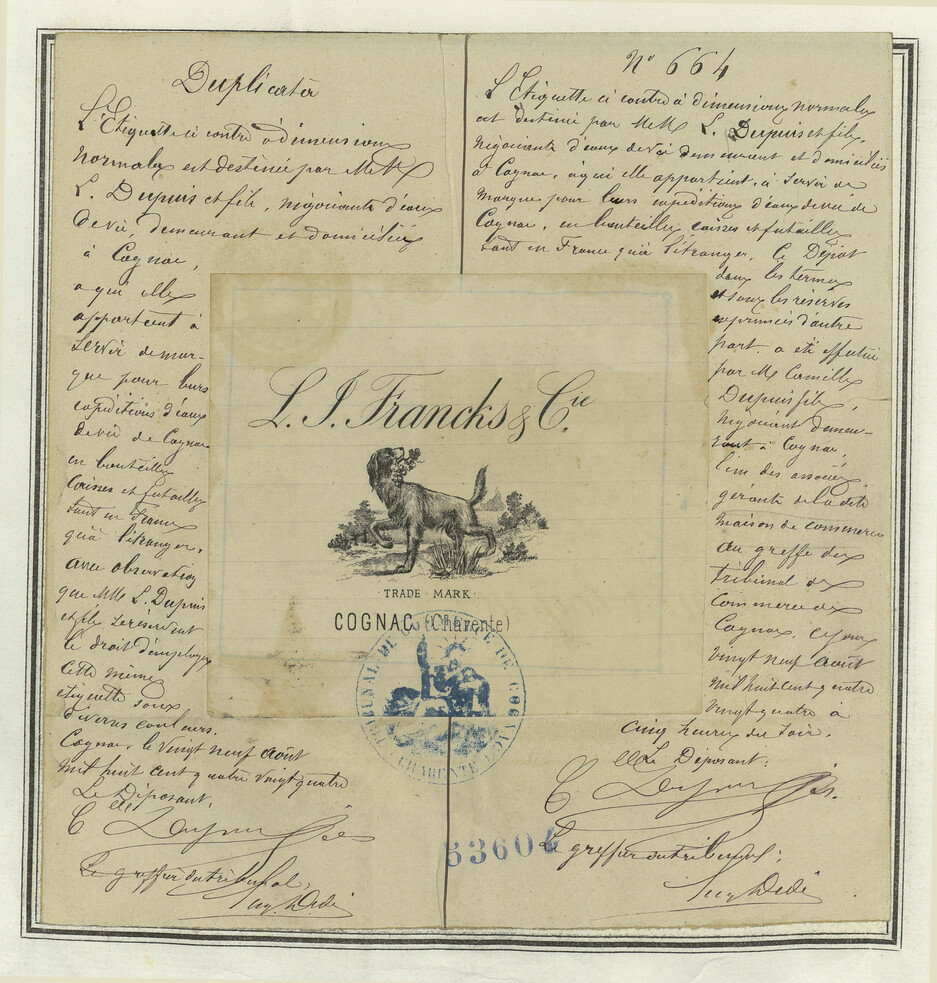 Duplicata
L'Etiquette ci contre à dimensions
normales est destinée par MM
L. Dupuis et fils, négociants d'eaux
de vie, demeurant et domiciliés
à Cognac,
a qui elle
appartient à
servir de mar-
que pour leurs
expéditions d'eaux
de vie de Cognac
en bouteilles
caisses et futailles
tant en France
qu'à l'étranger.
avec observation
que MM L. Dupuis
et fils se réservent
le droit d'employer
cette même
étiquette sous
diverses couleurs.
Cognac, le vingt neuf août
mil huit cent quatre vingt quatre
Le Déposant,
Clle Dupuis fils
Le greffier du tribunal,
Aug. Dedé
N° 664
L'Etiquette ci contre à dimensions normales
est destinée par MM L. Dupuis et fils,
négociants d'eaux de vie demeurant et domiciliés
à Cognac, à qui elle appartient, à servir de
marque pour leurs expéditions d'eaux de vie de
Cognac, en bouteilles caisses et futailles
tant en France qu'à l'étranger. Ce Dépôt
dans les termes
et sous les réserves
exprimées d'autre
part. a été effectué
par M. Camille
Dupuis fils,
négociant demeu-
rant à Cognac,
l'un des associés
gérants de la dite
maison de commerce
au greffe du
tribunal de
Commerce de
Cognac, ce jour
vingt neuf août
mil huit cent quatre
vingt quatre à
cinq heures du soir.
Le Déposant:
Clle Dupuis fils.
Le greffier du tribunal,
Aug Dedé
L. J. Francks & Cie.
TRADE MARK
COGNAC (Charente)
TRIBUNAL DE COMMERCE DE COGNAC
CHARENTE
53604